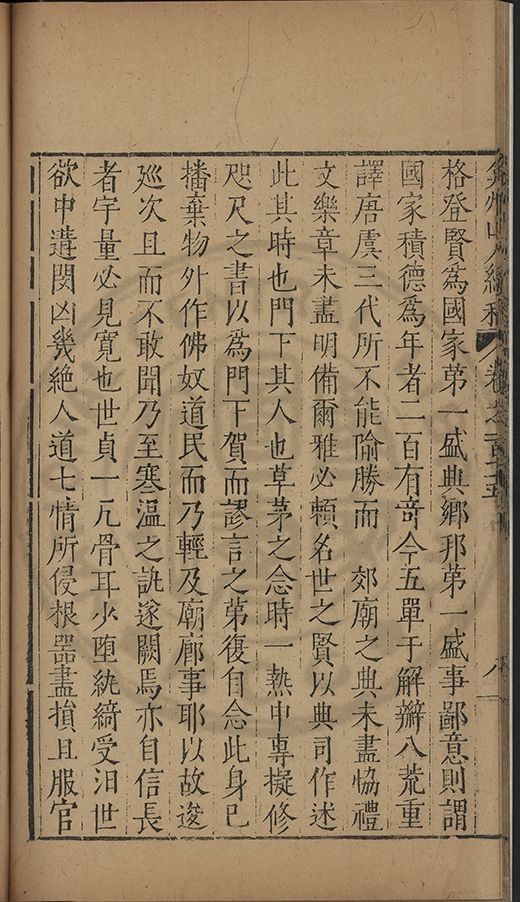 弇州山人續稿 卷之一百七十五 八
格登賢爲國家第一盛典鄉邦第一盛事鄙意則謂
國家積德爲年者二百有奇今五單于解辮八荒重
譯唐虞三代所不能隃勝而 郊廟之典未盡恊禮
文樂章未盡明備爾雅必賴名世之賢以典司作述
此其時也門下其人也草茅之念時一熱中專擬修
咫尺之書以爲門下賀而謬言之第復自念此身已
播棄物外作佛奴道民而乃輕及廟廊事耶以故逡
廵次且而不敢聞乃至寒温之訊遂闕焉亦自信長
者宇量必見寬也世貞一凡骨耳少堕紈綺受汨世
欲中遘閔凶幾絶人道七情所侵根器盡損且服官